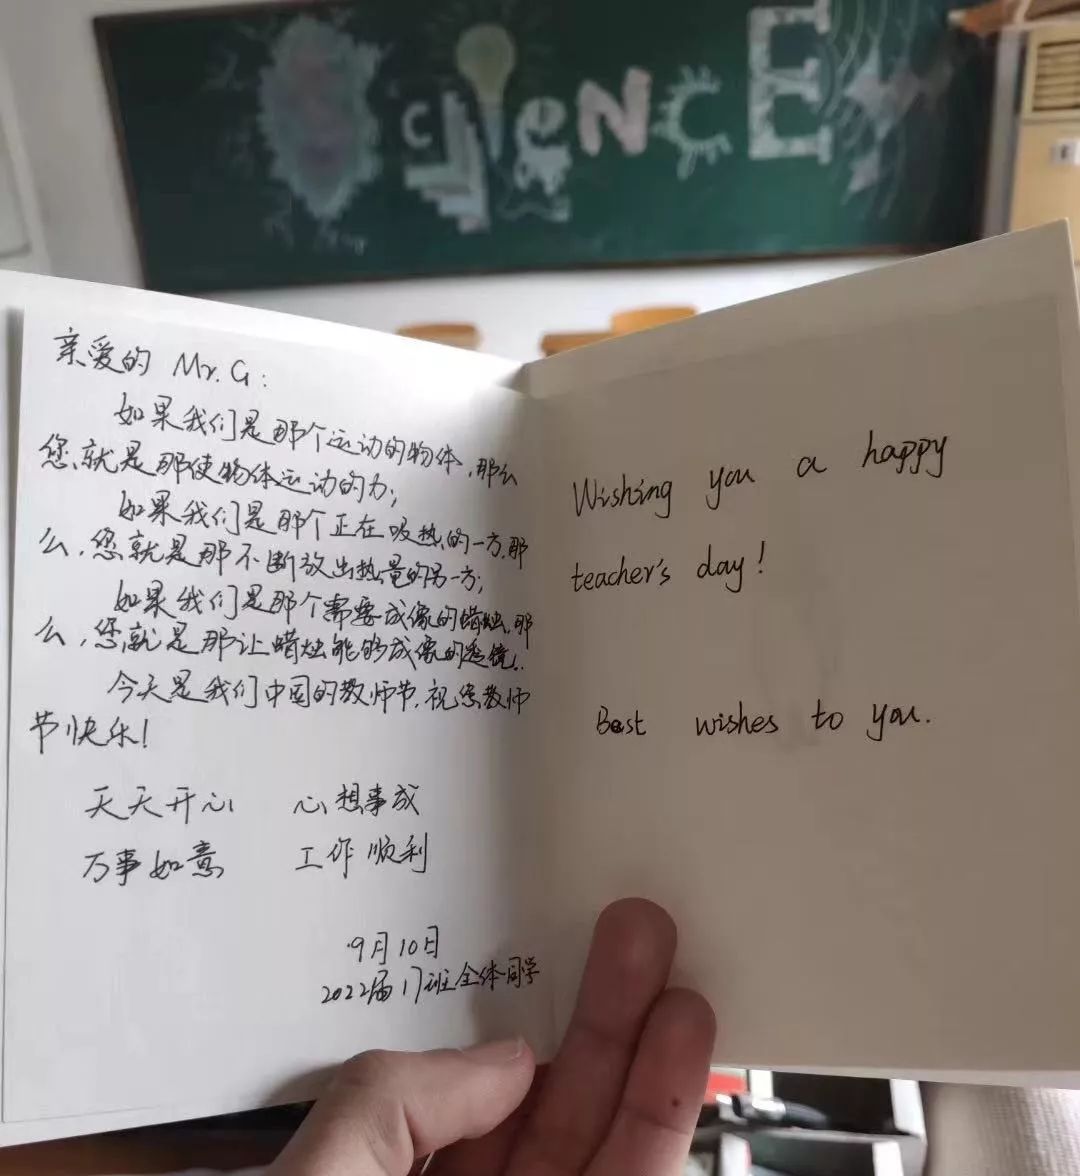 SCIENCE
亲爱的 Mr. G:
如果我们是那个运动的物体，那么
您就是那使物体运动的力；
如果我们是那个正在吸热的一方，那
么，您就是那不断放出热量的另一方；
如果我们是那个需要成像的蜡烛，那
么，您就是那让蜡烛能够成像的透镜！
今天是我们中国的教师节，祝您教师
节快乐！
天天开心 心想事成
万事如意 工作顺利
9月10日
2022届17班全体同学
Wishing you a happy
teacher's day!
Best wishes to you.